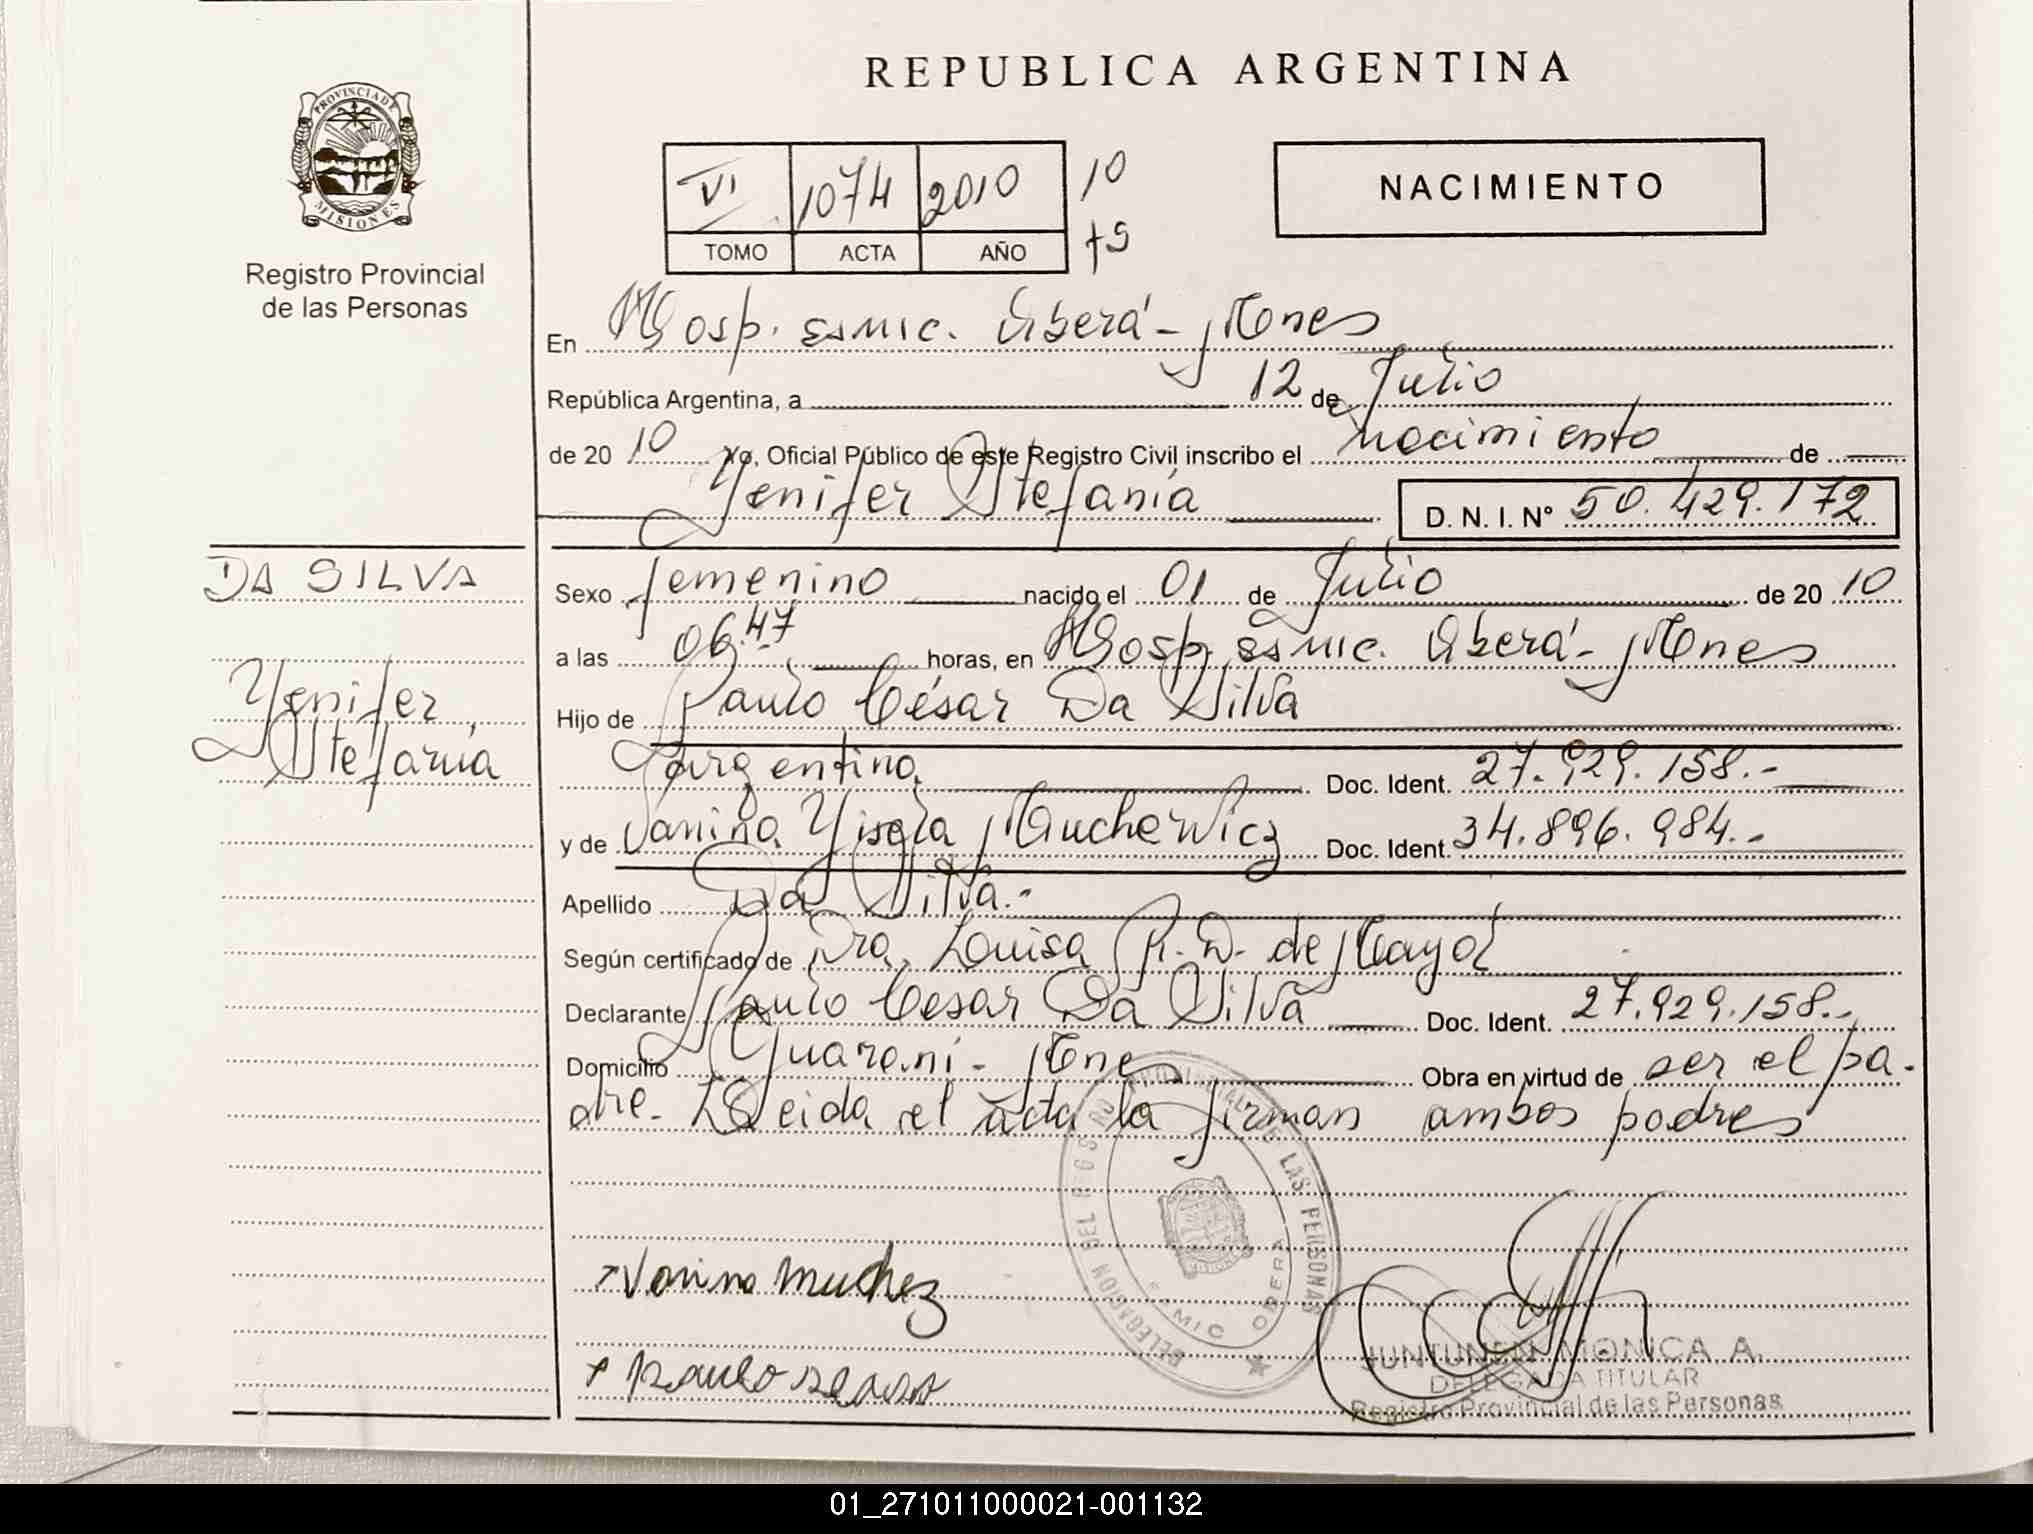 REPUBLICA ARGENTINA
PROVINCIA DE
MISIONES
Registro Provincial
de las Personas
VI 1074 2010 10
TOMO ACTA AÑO
NACIMIENTO
En Hosp. SSMIC. Oberá - Mnes
República Argentina, a 12 de Julio
de 2010 Yo, Oficial Público de este Registro Civil inscribo el nacimiento de
Yenifer Stefanía D. N. I. N° 50.429.172
DA SILVA
Yenifer
Stefanía
Sexo femenino nacido el 01 de Julio de 2010
a las 06.47 horas, en Hosp. SSMIC. Oberá - Mnes
Hijo de Paulo César Da Silva
Argentina Doc. Ident. 27.929.158.-
y de Vanina Yisela Muchewicz Doc. Ident. 34.896.984.-
Apellido Da Silva.-
Según certificado de Dra. Louisa R. D. de Mayol
Declarante Paulo Cesar Da Silva Doc. Ident. 27.929.158.-
Domicilio Guaraní - Mne Obra en virtud de ser el pa-
dre. Leida el acta la firman ambos padres
DELEGACION DEL REGISTRO PROVINCIAL DE LAS PERSONAS
OBERA
Vanina Muchez
JUNTUNEN MONICA A.
DELEGADA TITULAR
Registro Provincial de las Personas
01_271011000021-001132